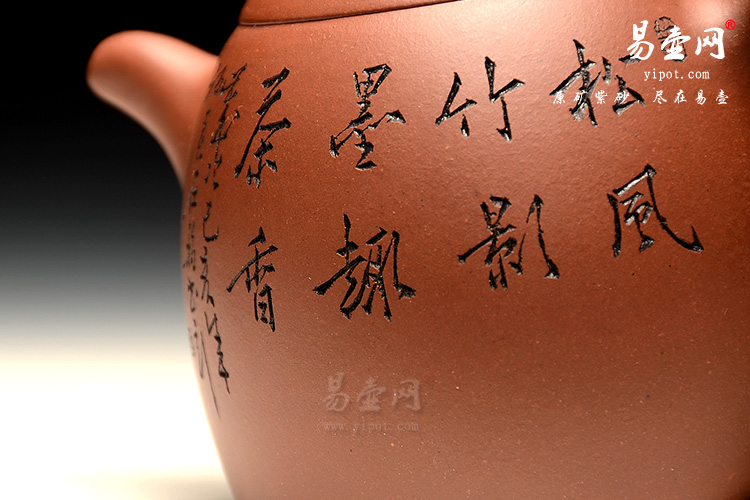 易壶网®
yipot.com
原矿紫砂 尽在易壶
松风
竹影
墨趣
茶香
己亥年
易壶网
www.yipot.com